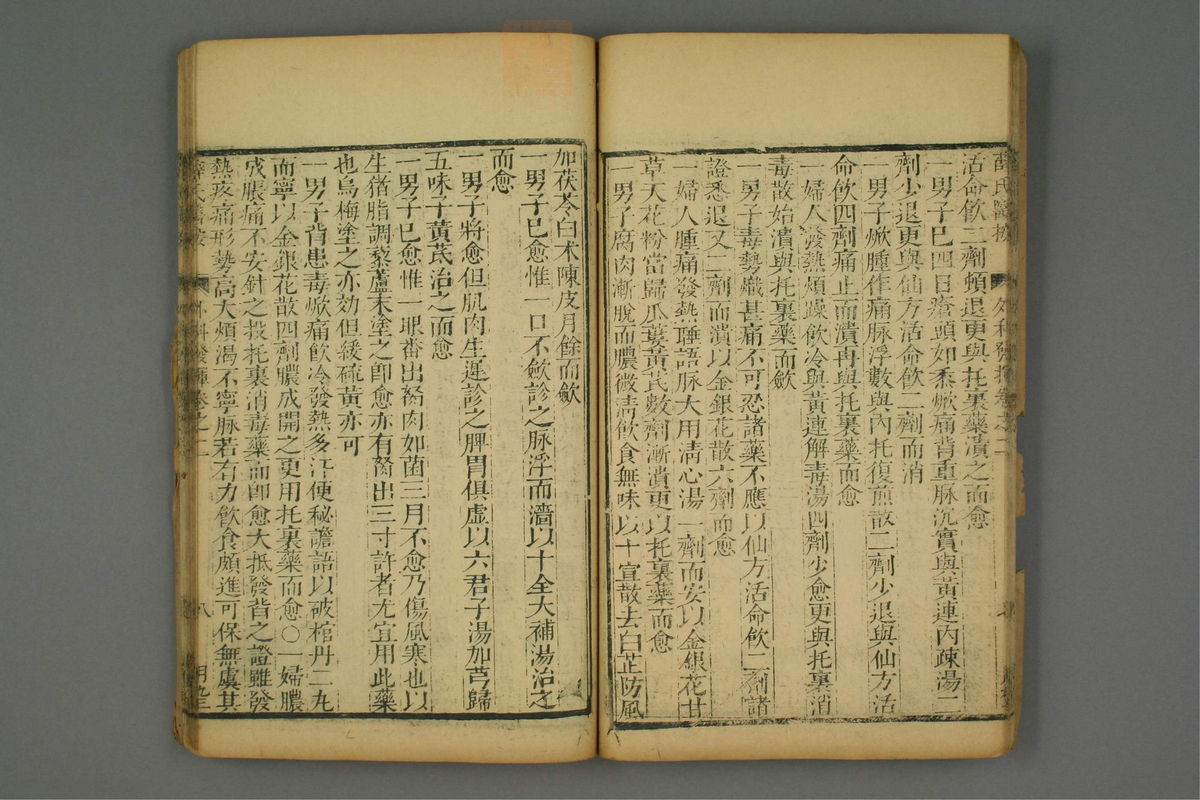 薛氏醫按 外科發揮卷之二
活命飲二劑頓退更與托裏藥潰之而愈
一男子已四日瘡頭如黍焮痛背重脉沉實與黃連内疎湯二
劑少退更與仙方活命飲二劑而消
一男子焮腫作痛脉浮數與内托復煎散二劑少退與仙方活
命飲四劑痛止而潰再與托裏藥而愈
一婦人發熱煩躁飲冷與黃連解毒湯四劑少愈更與托裏消
毒散始潰與托裏藥而斂
一男子毒勢熾甚痛不可忍諸藥不應以仙方活命飲二劑諸
證悉退又二劑而潰以金銀花散六劑而愈
一婦人腫痛發熱睡語脉大用清心湯一劑而安以金銀花甘
草天花粉當歸瓜蔞黃芪數劑漸潰更以托裏藥而愈
一男子腐肉漸脫而膿微清飲食無味以十宣散去白芷防風
加茯苓白术陳皮月餘而斂
一男子已愈惟一口不斂診之脉浮而濇以十全大補湯治之
而愈
一男子將愈但肌肉生遲診之脾胃俱虛以六君子湯加芎歸
五味子黃芪治之而愈
一男子已愈惟一眼番出胬肉如菌三月不愈乃傷風寒也以
生猪脂調藜蘆末塗之即愈亦有胬出三寸許者尤宜用此藥
也烏梅塗之亦効但緩硫黃亦可
一男子背患毒焮痛飲冷發熱多汗便秘譫語以破棺丹二丸
而寧以金銀花散四劑膿成開之更用托裏藥而愈○一婦膿
成脹痛不安針之投托裏消毒藥而即愈大抵發背之證雖發
熱疼痛形勢高大煩渴不寧脉若有力飲食頗進可保無虞其
薛氏醫按 外科發揮卷之二 八